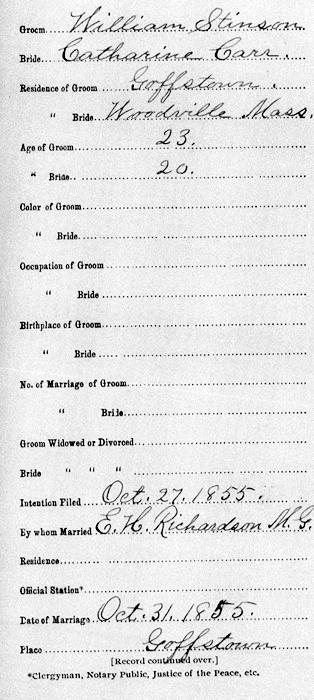 Groom William Stinson.
Bride Catharine Carr.
Residence of Groom Goffstown.
" Bride Woodville Mass.
Age of Groom 23.
" Bride 20.
Color of Groom
" Bride
Occupation of Groom
" Bride
Birthplace of Groom
" Bride
No. of Marriage of Groom
" Bride
Groom Widowed or Divorced
Bride " " "
Intention Filed Oct. 27. 1855.
By whom Married E. H. Richardson M. G.
Residence
Official Station*
Date of Marriage Oct. 31. 1855.
Place Goffstown
[Record continued over.]
*Clergyman, Notary Public, Justice of the Peace, etc.